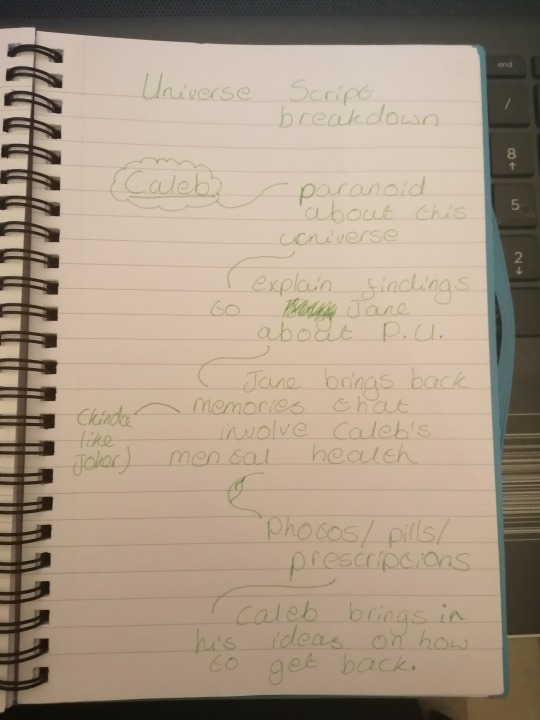 Universe Script
breakdown
Caleb
paranoid
about this
universe
explain findings
to Jane
about P.U.
Jane brings back
memories that
involve Caleb's
mental health
(kinda
like
Joker)
photos/pills/
prescriptions
Caleb brings in
his ideas on how
to get back.
end
/
8
5
2